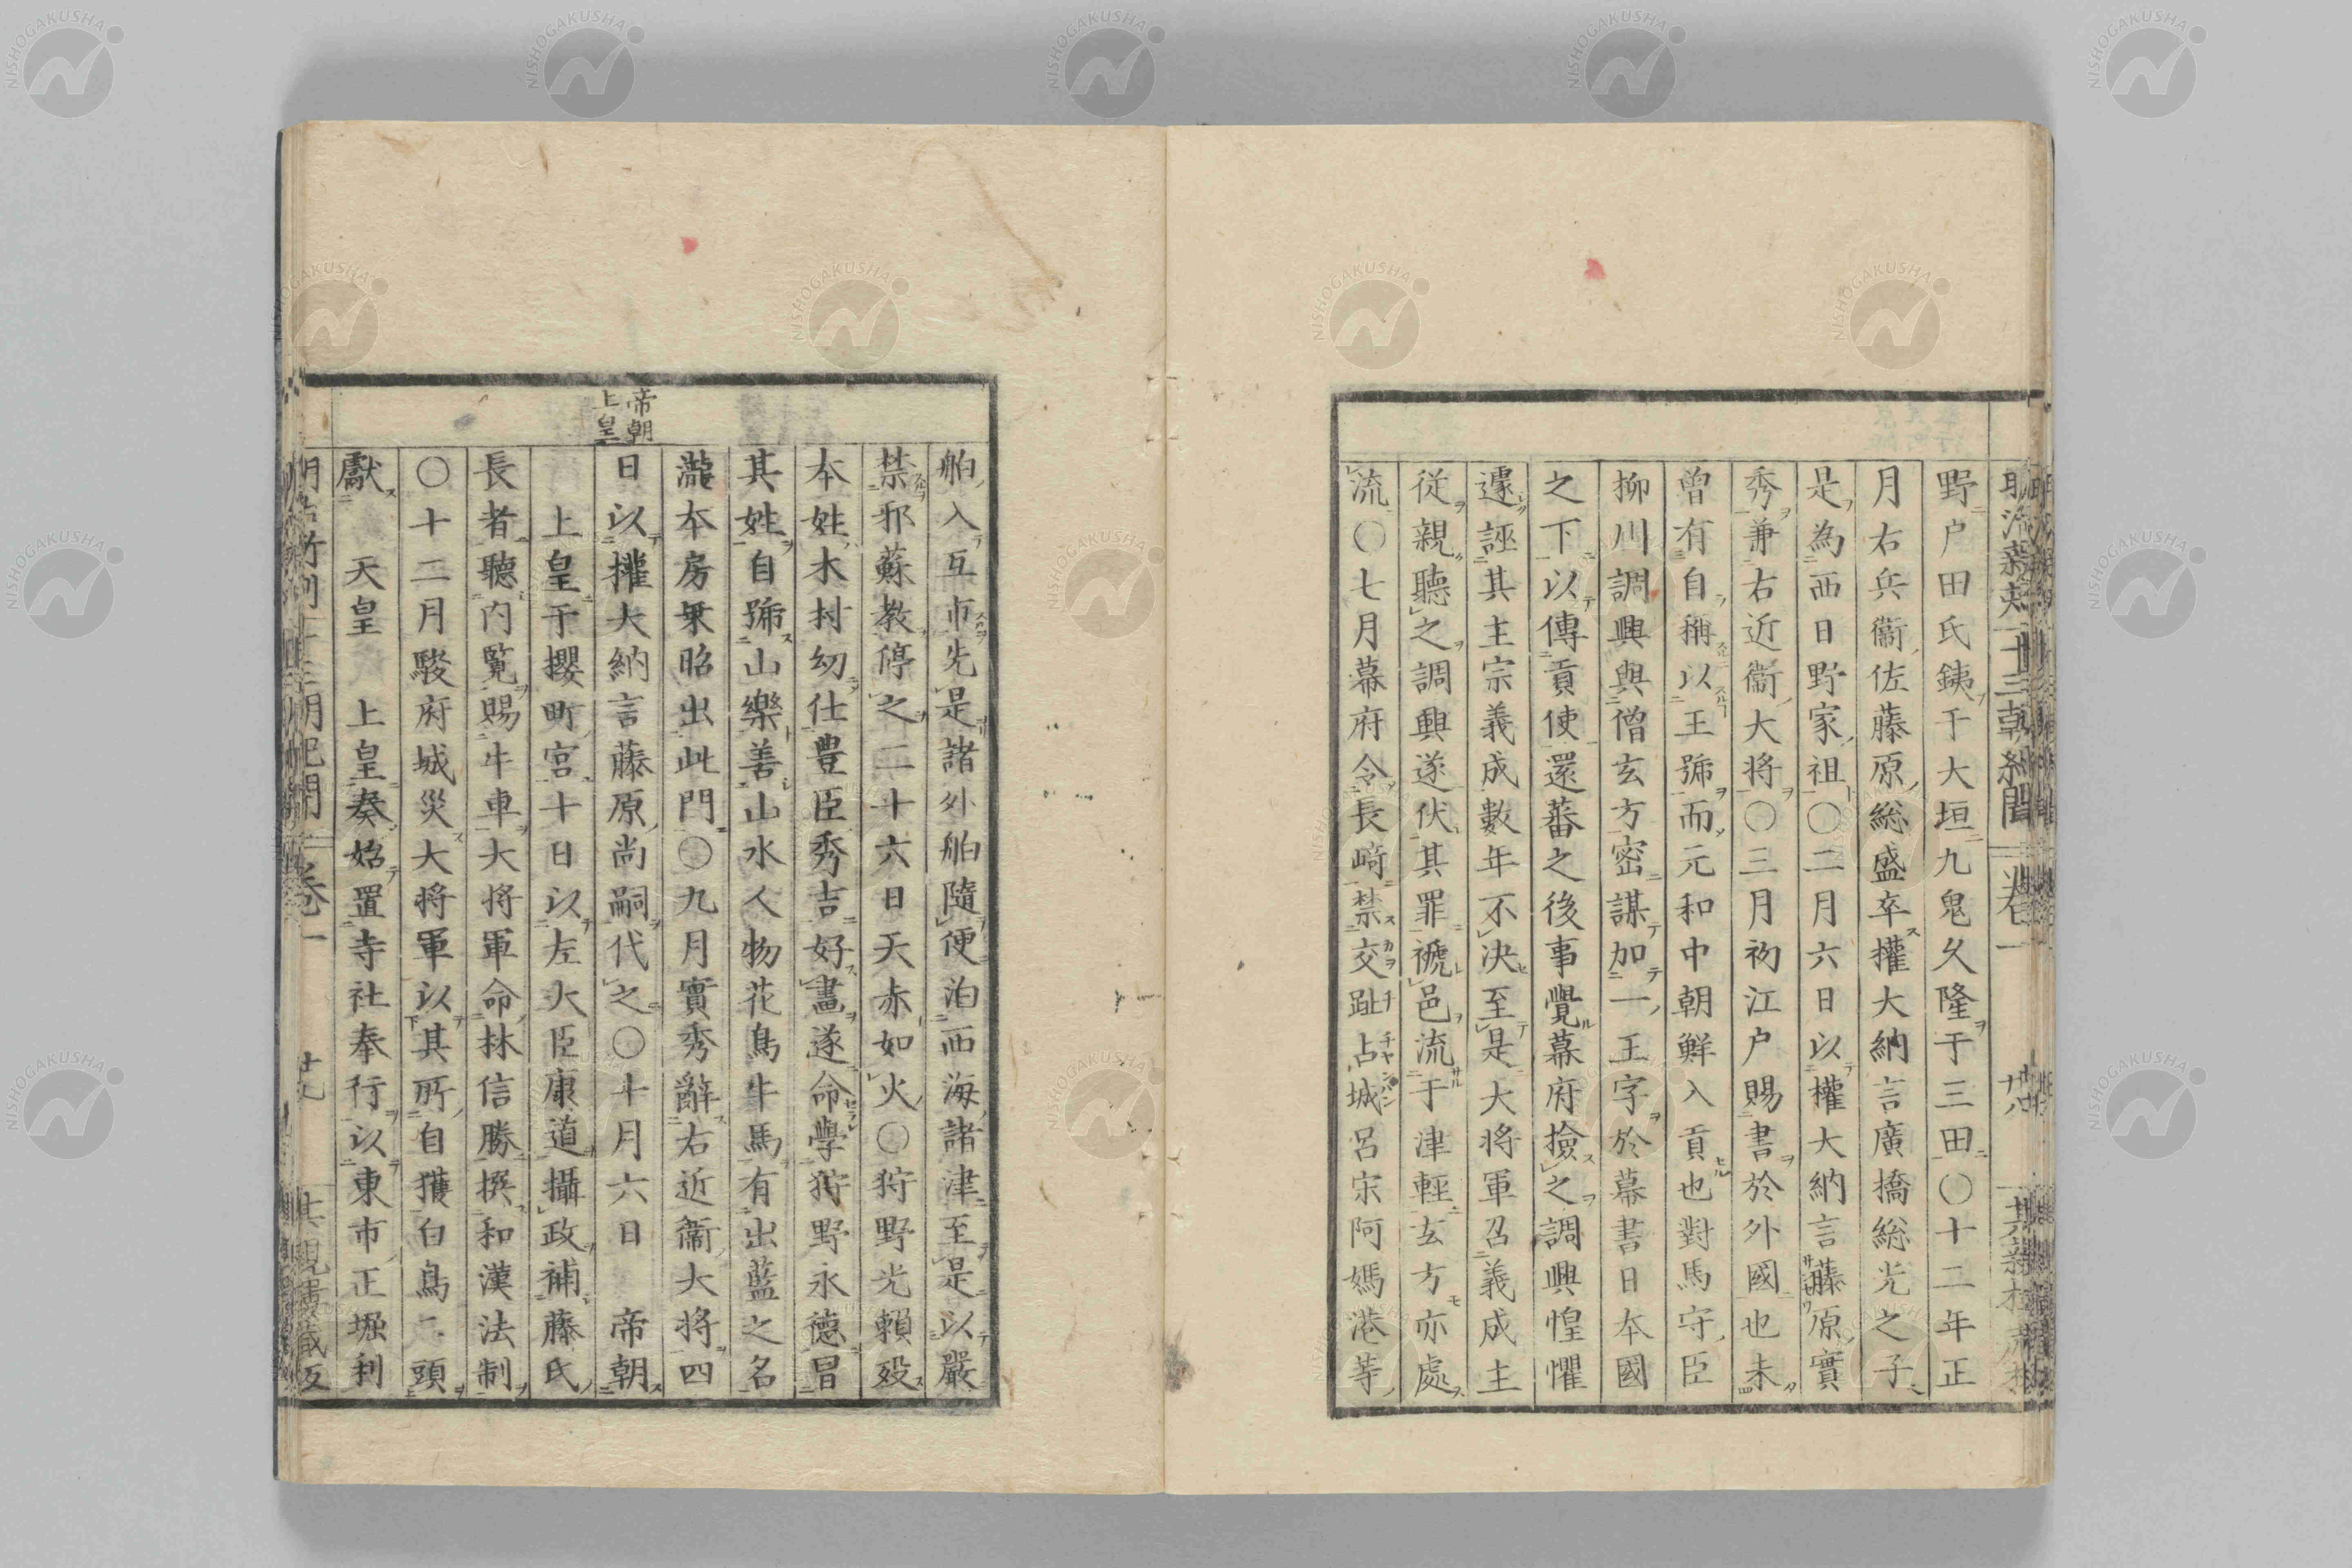 野戸田氏銕于大垣九鬼久隆于三田〇十二年正
月右兵衞佐藤原総盛卒權大納言廣橋総光之子
是為西日野家祖〇二月六日以權大納言藤原實
秀兼右近衞大将〇三月初江户賜書於外國也未
曽有自稱以王號而元和中朝鮮入貢也對馬守臣
柳川調興與僧玄方密謀加一王字於幕書日本國
之下以傳貢使還蕃之後事覺幕府撿之調興惶懼
遽誣其主宗義成數年不決至是大将軍召義成主
従親聽之調興遂伏其罪褫邑流于津輕玄方亦處
流〇七月幕府令長崎禁交趾占城呂宋阿媽港等
帝朝
上皇
舶入互市先是諸外舶隨便泊西海諸津至是以嚴
禁邪蘇教停之二十六日天赤如火〇狩野光頼歿
本姓木村幼仕豊臣秀吉好畫遂命學狩野永徳冒
其姓自號山樂善山水人物花鳥牛馬有出藍之名
瀧本房乗昭出此門〇九月實秀辭右近衞大将四
日以權大納言藤原尚嗣代之〇十月六日　帝朝
　上皇于櫻町宮十日以左大臣康道攝政補藤氏
長者聽内覧賜牛車大将軍命林信勝撰和漢法制
〇十二月駿府城災大将軍以其所自獲白鳥二頭
獻　天皇　上皇奏始置寺社奉行以東市正堀利